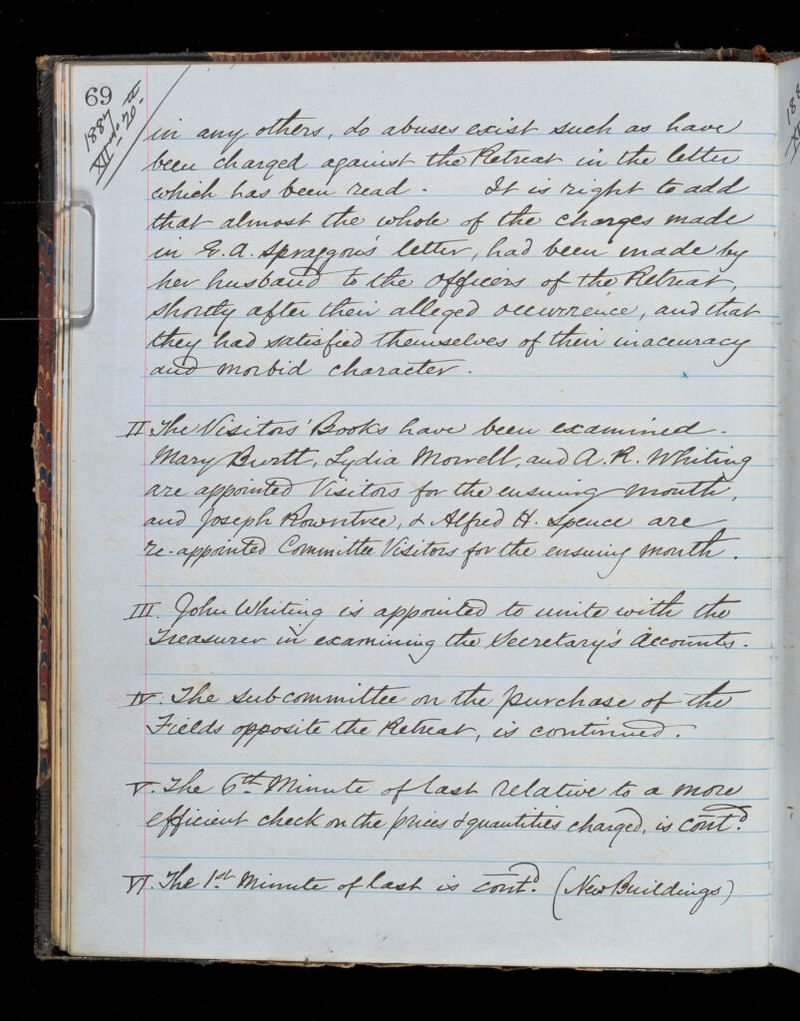 69
1887
XII mo. 20th.
in any others, do abuses exist such as have
been charged against the Retreat in the letter
which has been read. It is right to add
that almost the whole of the charges made
in E. A. Spraggon's letter, had been made by
her husband to the Officers of the Retreat,
shortly after their alleged occurrence, and that
they had satisfied themselves of their inaccuracy
and morbid character.
II The Visitors' Books have been examined.
Mary Burtt, Lydia Morrell, and A. R. Whiting
are appointed Visitors for the ensuing month,
and Joseph Rowntree, & Alfred H. Spence are
re-appointed Committee Visitors for the ensuing month.
III. John Whiting is appointed to unite with the
Treasurer in examining the Secretary's Accounts.
IV. The subcommittee on the purchase of the
Fields opposite the Retreat, is continued.
V. The 6th Minute of last relative to a more
efficient check on the prices & quantities charged, is contd.
VI. The 1st Minute of last is contd. (New Buildings)
188